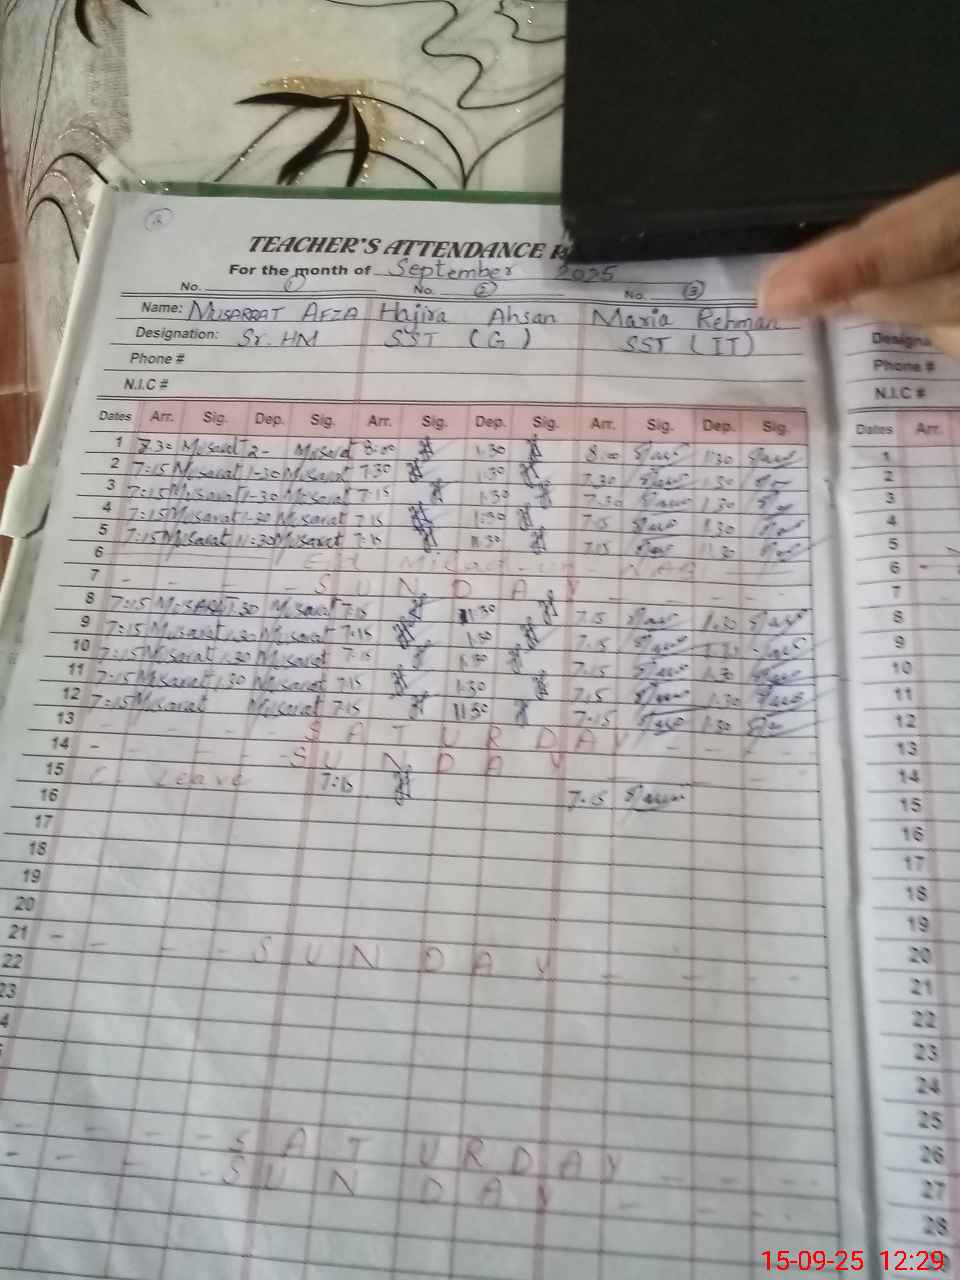 TEACHER'S ATTENDANCE
For the month of September 2025
No. 1 No. 2 No. 3
Name: MUSARRAT AFZA Hajira Ahsan Maria Rehman
Designation: Sr. HM SST (G) SST (IT)
Designa
Phone #
Phone #
N.I.C #
N.I.C #
Dates Arr. Sig. Dep. Sig. Arr. Sig. Dep. Sig. Arr. Sig. Dep. Sig.
Dates Arr.
1 Musarat 2- Musarat 8:00 1:30 8:00 1:30
2 7:15 Musarat 1-30 Musarat 7:30 1:30 7:30 1:30
3 7:15 Musarat 1-30 Musarat 7:15 1:30 7:30 1:30
4 7:15 Musarat 1-30 Musarat 7:15 1:30 7:15 1:30
5 7:15 Musarat 11:30 Musarat 7:15 11:30 7:15
6 Eid Milad-un-Nabi
7 - - - - S U N D A Y - - -
8 7:15 MUSARAT 1.30 Musarat 7:15 11:30 7.15 1.30
9 7:15 Musarat 1.30 Musarat 7:15 1:30 7.15
10 7:15 Musarat 1.30 Musarat 7:15 1:30 7:15 1.30
11 7:15 Musarat 1.30 Musarat 7:15 1:30 7:15 1.30
12 7:15 Musarat Musarat 7:15 11:30 7:15 1:30
13 - - - - S A T U R D A Y - - -
14 - - - - S U N D A Y - - -
15 C. Leave 7:15 7.15
16
17
18
19
20
21 - - - - S U N D A Y - - -
22
23
4
- - - - S A T U R D A Y - - -
- - - - S U N D A Y - - -
1
2
3
4
5
6
7
8
9
10
11
12
13
14
15
16
17
18
19
20
21
22
23
24
25
26
27
28
15-09-25 12:29